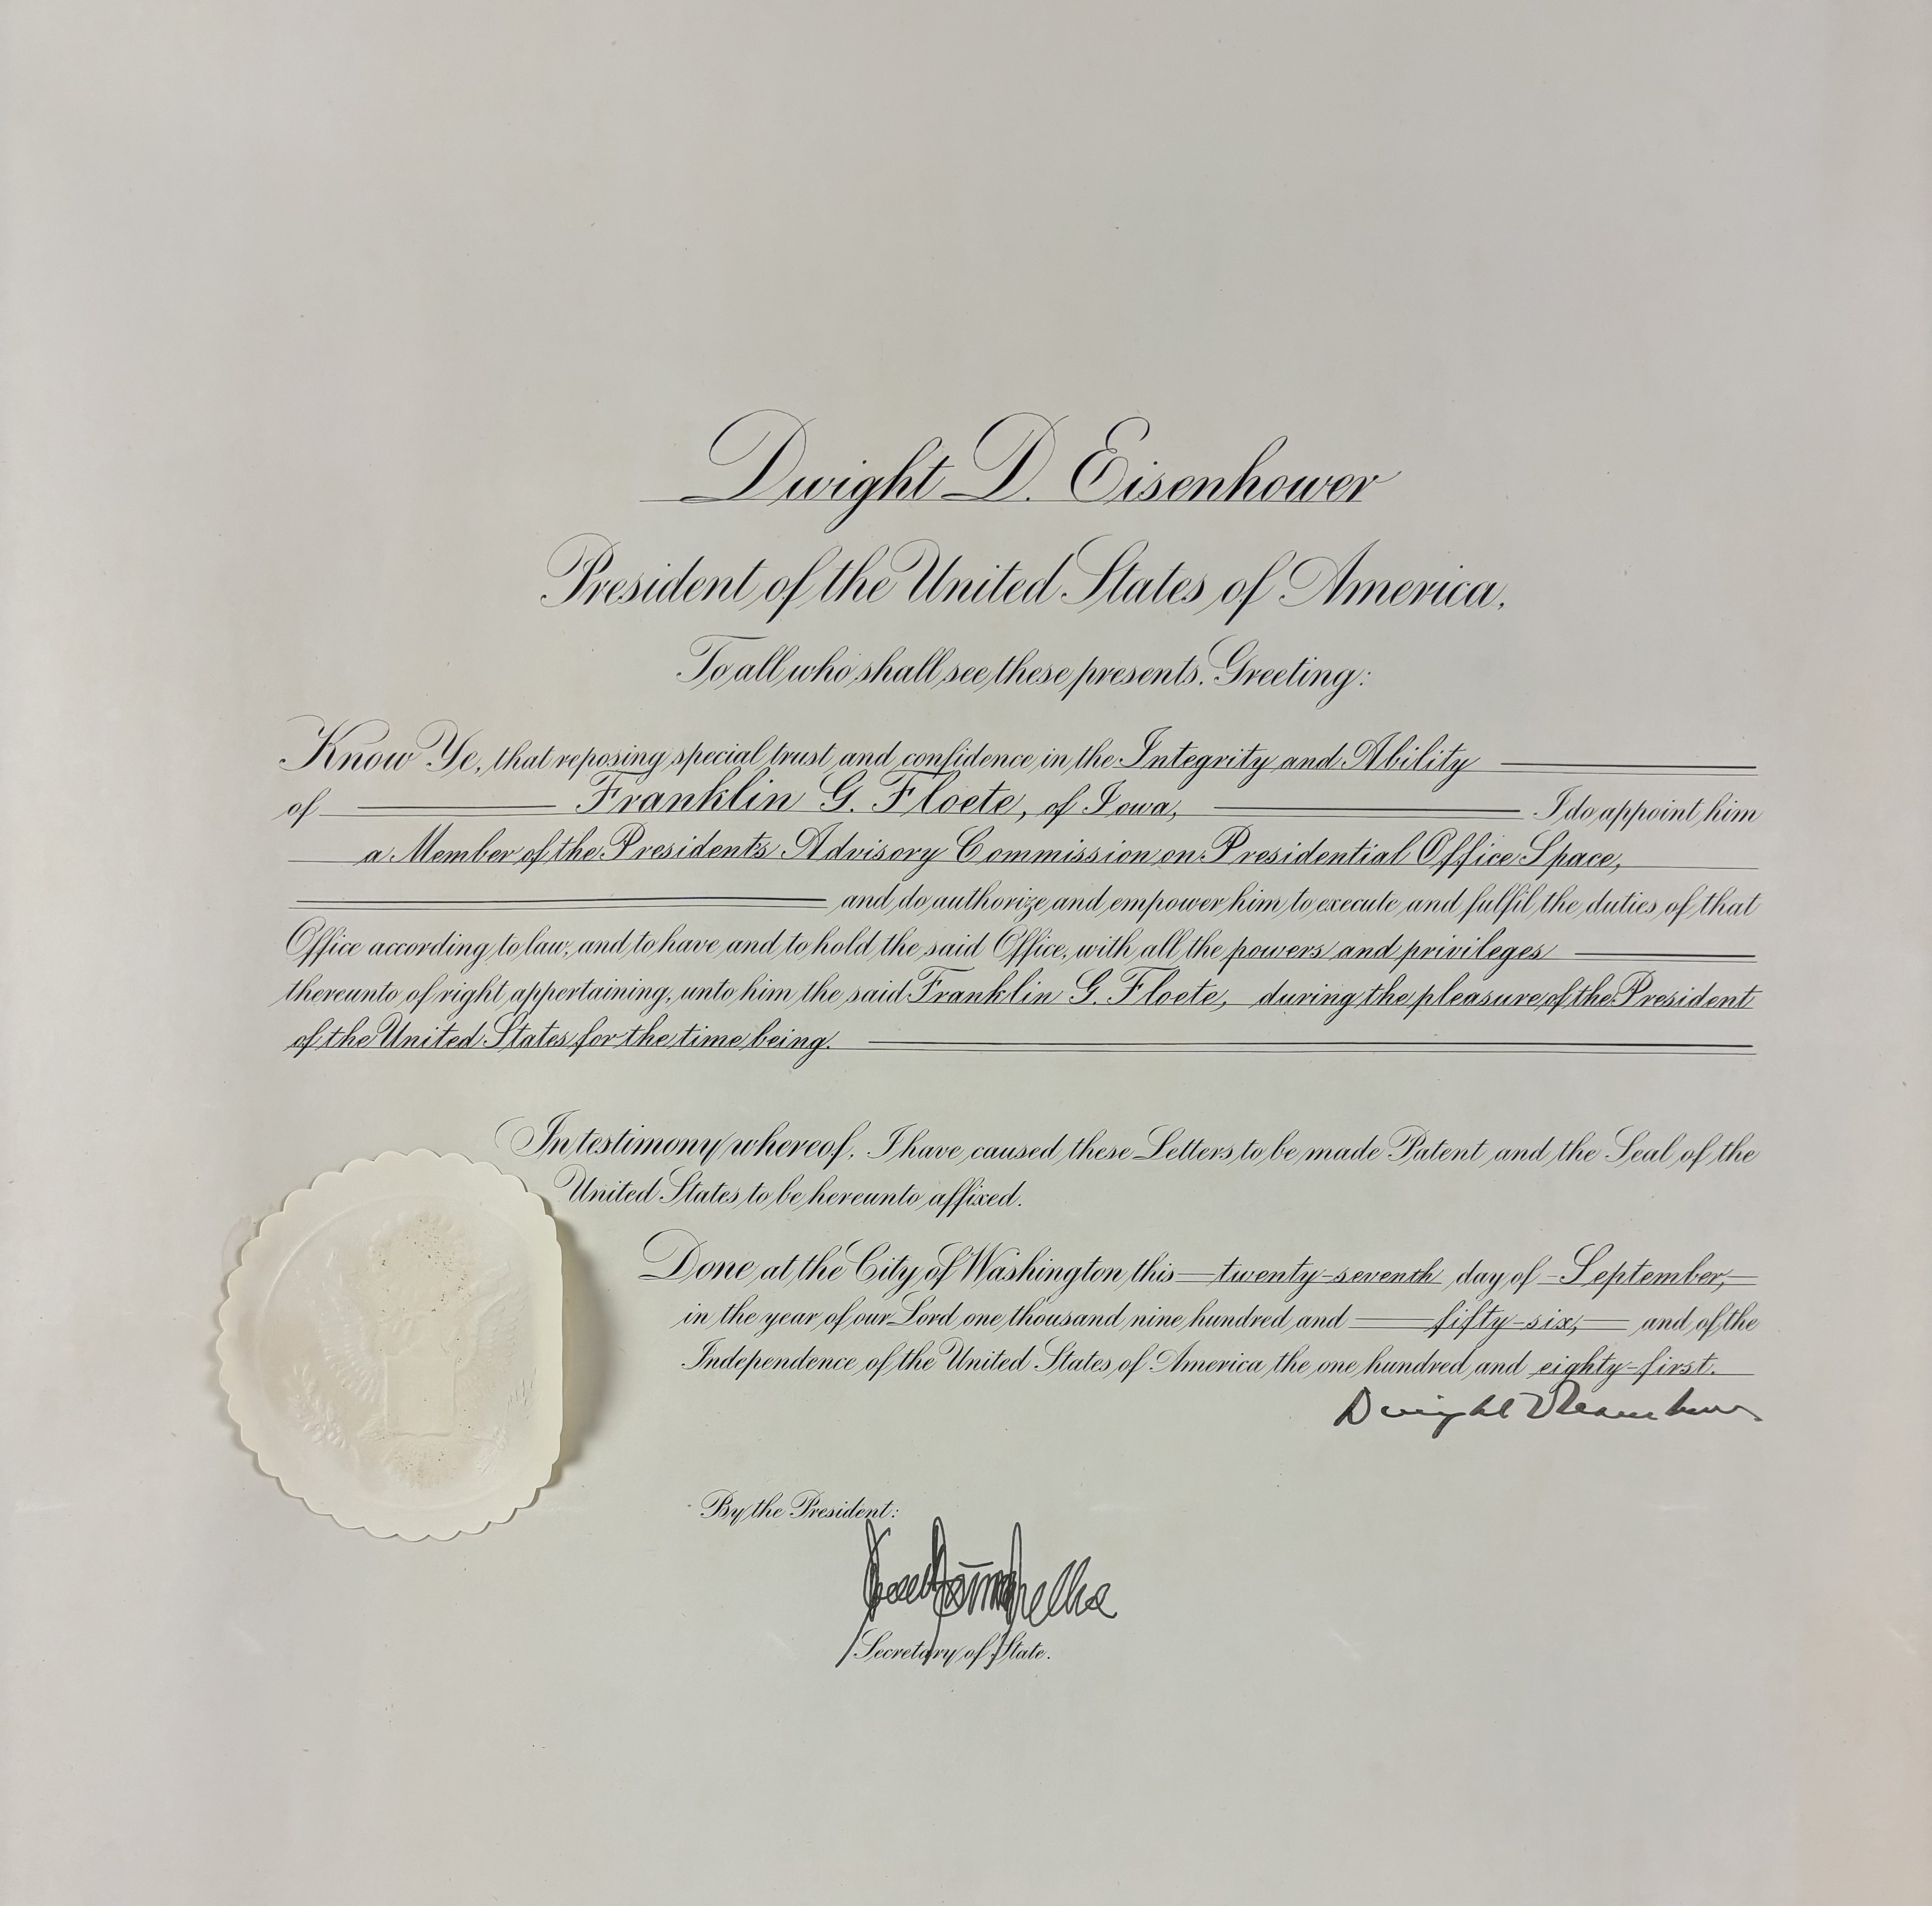 Dwight D. Eisenhower
President of the United States of America,
To all who shall see these presents, Greeting:
Know Ye, that reposing special trust and confidence in the Integrity and Ability
of Franklin G. Floete, of Iowa, I do appoint him
a Member of the President's Advisory Commission on Presidential Office Space,
and do authorize and empower him to execute and fulfil the duties of that
Office according to law, and to have and to hold the said Office, with all the powers and privileges
thereunto of right appertaining, unto him the said Franklin G. Floete, during the pleasure of the President
of the United States for the time being.
In testimony whereof, I have caused these Letters to be made Patent and the Seal of the
United States to be hereunto affixed.
Done at the City of Washington this twenty-seventh day of September,
in the year of our Lord one thousand nine hundred and fifty-six, and of the
Independence of the United States of America the one hundred and eighty-first.
Dwight D Eisenhower
By the President:
Secretary of State.